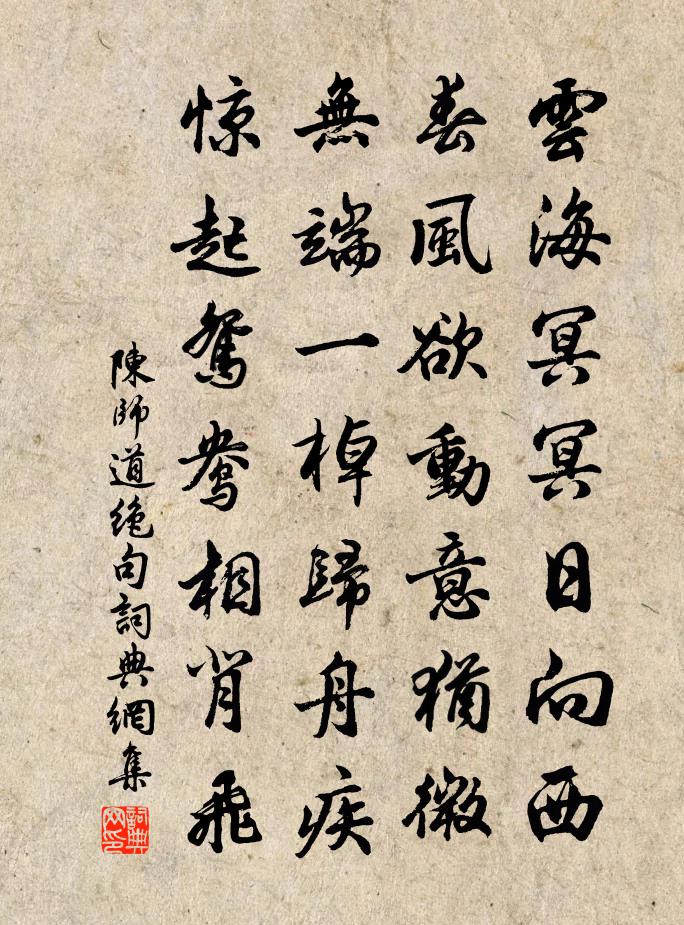 雲海冥冥日向西
春風欲動意猶微
無端一棹歸舟疾
惊起鴛鴦相背飛
陳師道絶句詞典網集
詞典網印